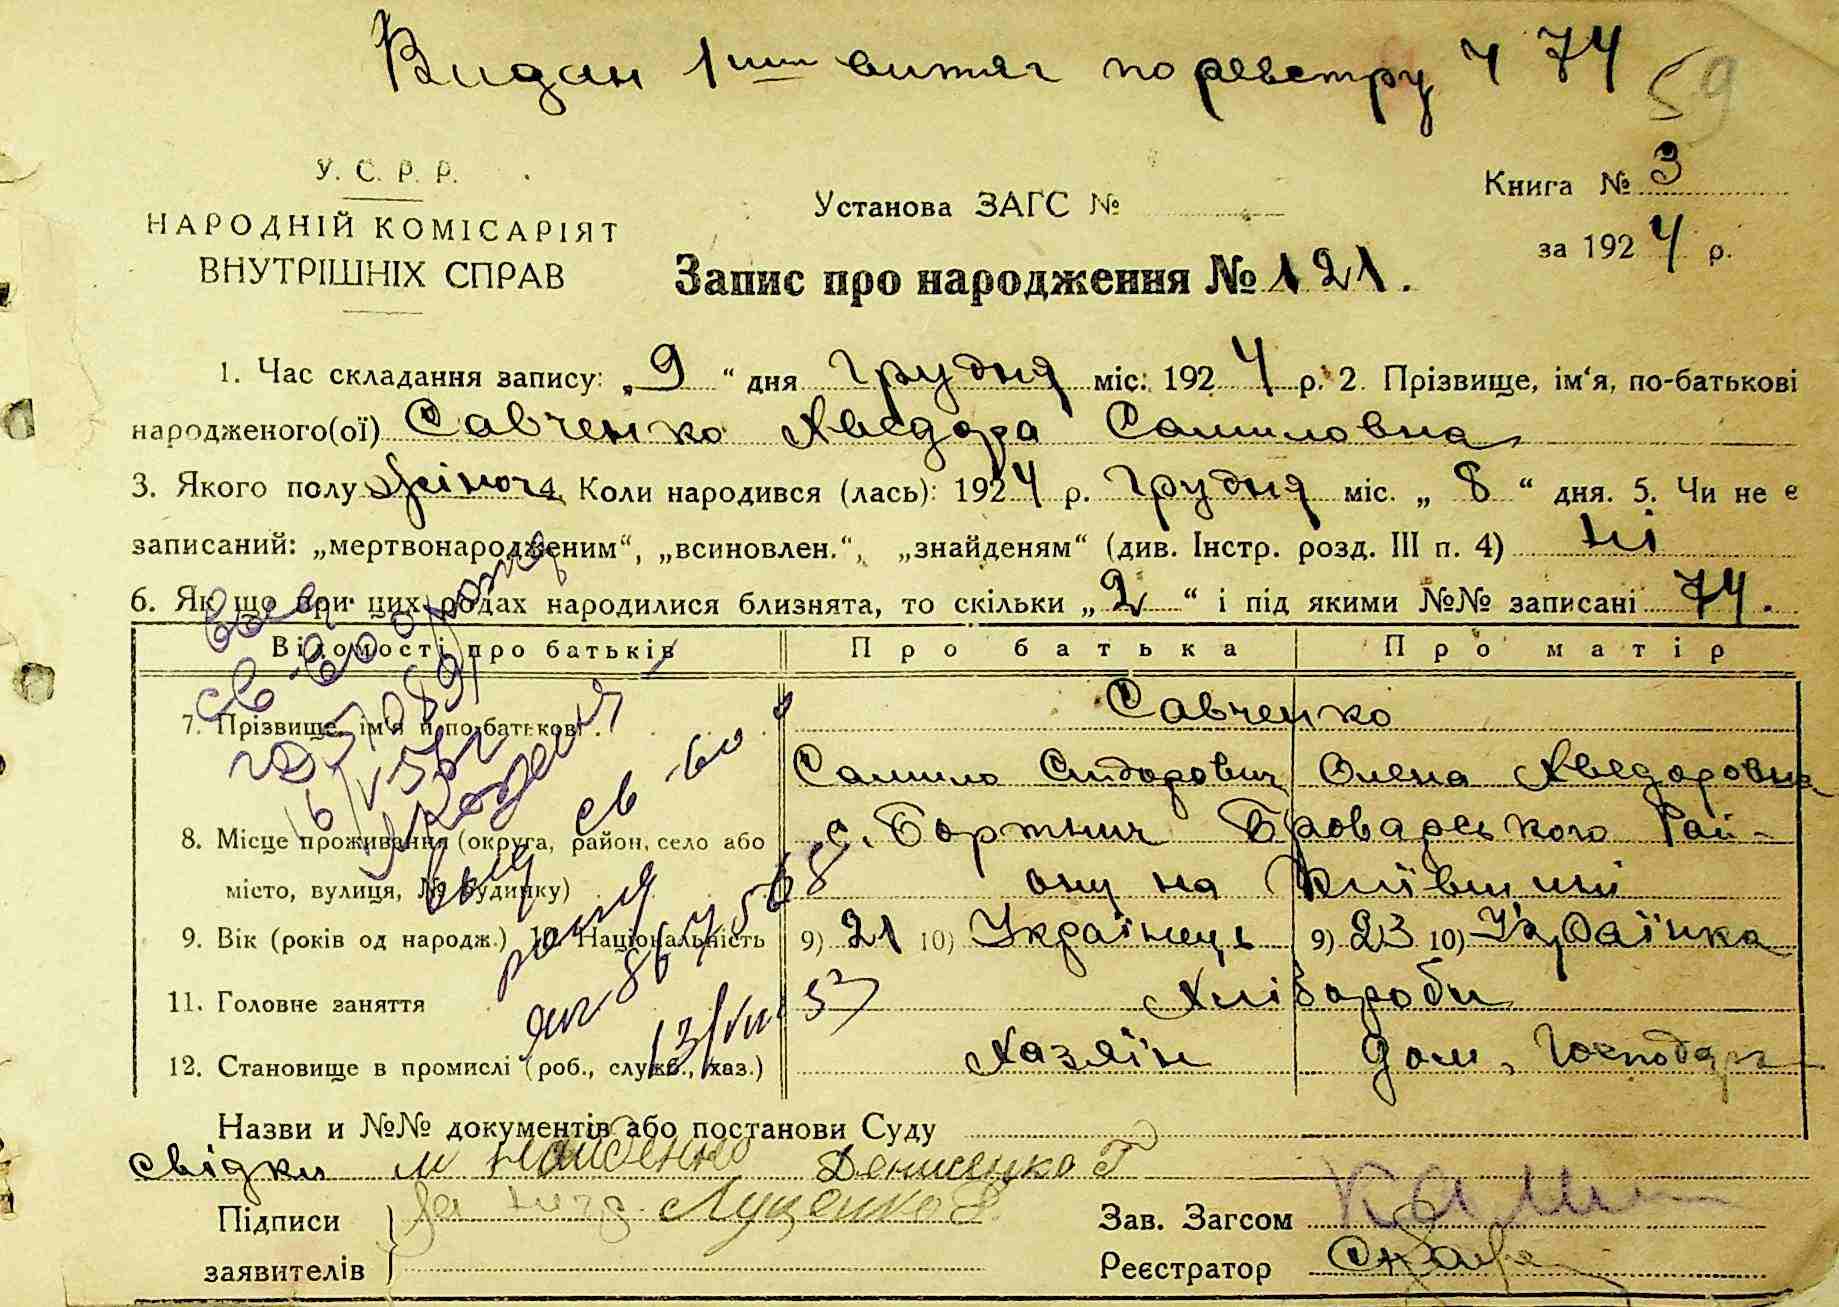 Видан 1шш витяг по реєстру Ч 74
59
У. С. Р. Р.
НАРОДНІЙ КОМІСАРІЯТ
ВНУТРІШНІХ СПРАВ
Установа ЗАГС №
Книга № 3
за 1924 р.
Запис про народження № 121.
1. Час складання запису: „9“ дня грудня міс. 1924 р. 2. Прізвище, ім‘я, по-батькові
народженого(ої) Савченко Хведора Самиловна
3. Якого полу жіноч 4. Коли народився (лась): 1924 р. грудня міс. „8“ дня. 5. Чи не є
записаний: „мертвонародженим“, „всиновлен.“, „знайденям“ (див. Інстр. розд. III п. 4) ні
6. Як що при цих родах народилися близнята, то скільки „2“ і під якими №№ записані 74.
Відомості про батьків Про батька Про матір
7. Прізвище, ім‘я й по-батькові Савченко
Самило Сидорович Олена Хведоровна
8. Місце проживання (округа, район, село або с. Бортнич Броварського Рай-
місто, вулиця, № будинку) ону на Київщині
9. Вік (років од народж.) 10. Національність 9) 21 10) Українець 9) 23 10) Українка
11. Головне заняття Хліборобы
12. Становище в промислі (роб., служб., хаз.) Хазяїн Дом. Господарк
св-во
13/VII 57
Назви и №№ документів або постанови Суду
свідки М Найденко Денисенко Г
Підписи Луценко
заявителів
Зав. Загсом
Реєстратор